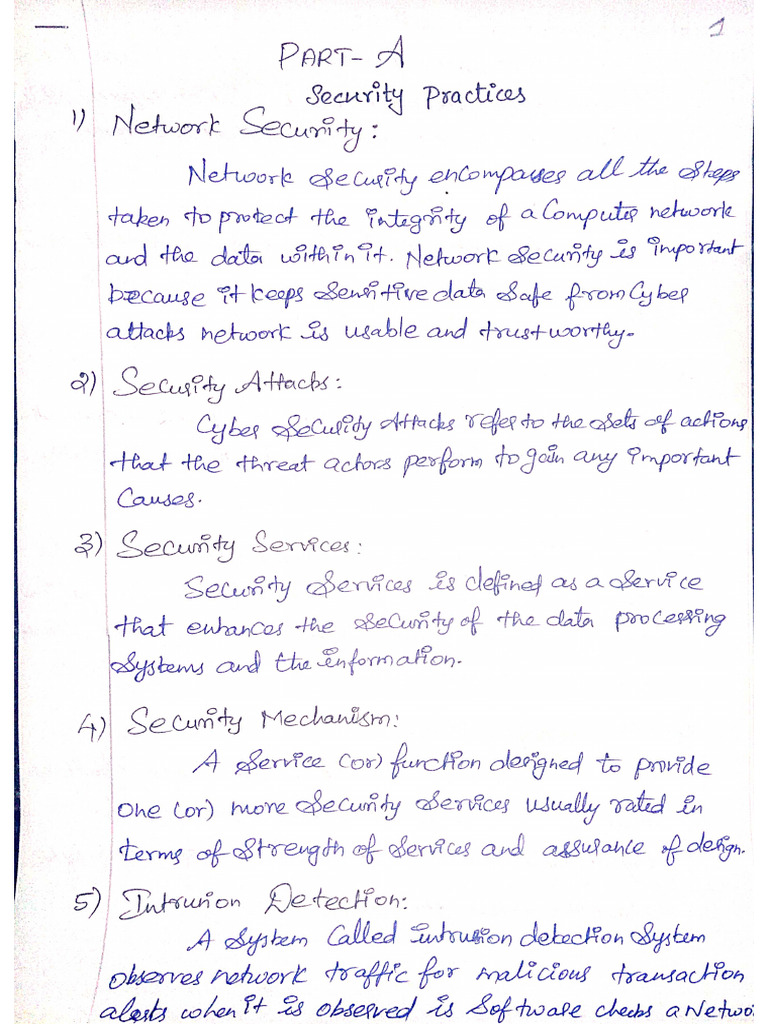 1
PART- A
Security Practices
1) Network Security:
Network Security encompasses all the Steps
taken to protect the integrity of a Computer network
and the data within it. Network Security is important
because it keeps Sensitive data Safe from Cyber
attacks network is usable and trust worthy.
2) Security Attacks:
Cyber Security Attacks refer to the Sets of actions
that the threat actors perform to gain any important
Causes.
3) Security Services:
Security Services is defined as a Service
that enhances the Security of the data processing
Systems and the information.
4) Security Mechanism:
A Service (or) function designed to provide
One (or) more Security Services usually rated in
terms of Strength of Services and assurance of design.
5) Intrusion Detection:
A System Called intrusion detection System
observes network traffic for malicious transaction
alerts when it is observed is Software checks a Netwo